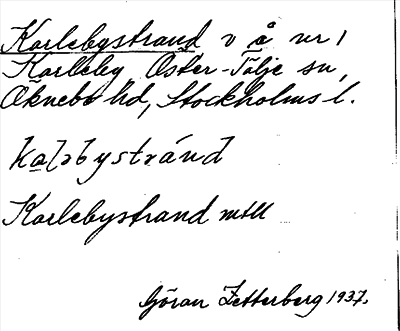 Karlebystrand v å nr 1
Karleby, Öster-Tälje sn,
Öknebo hd, Stockholms l.
Karlebystrand
Göran Zetterberg 1937.